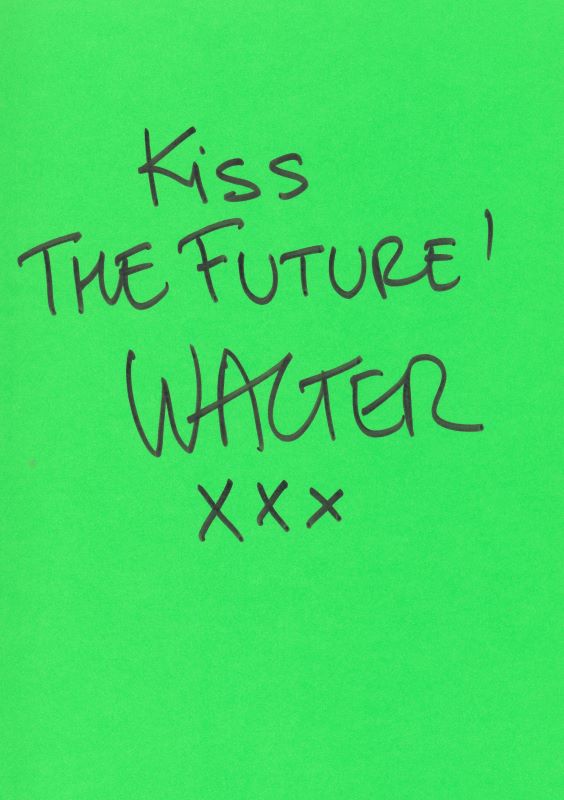 Kiss
THE FUTURE!
WALTER
xxx